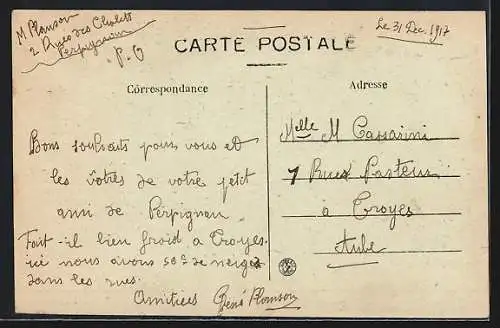 M Plauson
2 Rues des
Perpignan
P. O
Le 31 Dec. 1917
CARTE POSTALE
Correspondance
Adresse
Bons souhaits pour vous et
les vôtres de votre petit
ami de Perpignan.
Fait-il bien froid a Troyes.
ici nous avons 50c de neige
dans les rues.
Amitiées René Plauson
Melle M Cassarini
7 Rue Pasteur
à Troyes
Aube